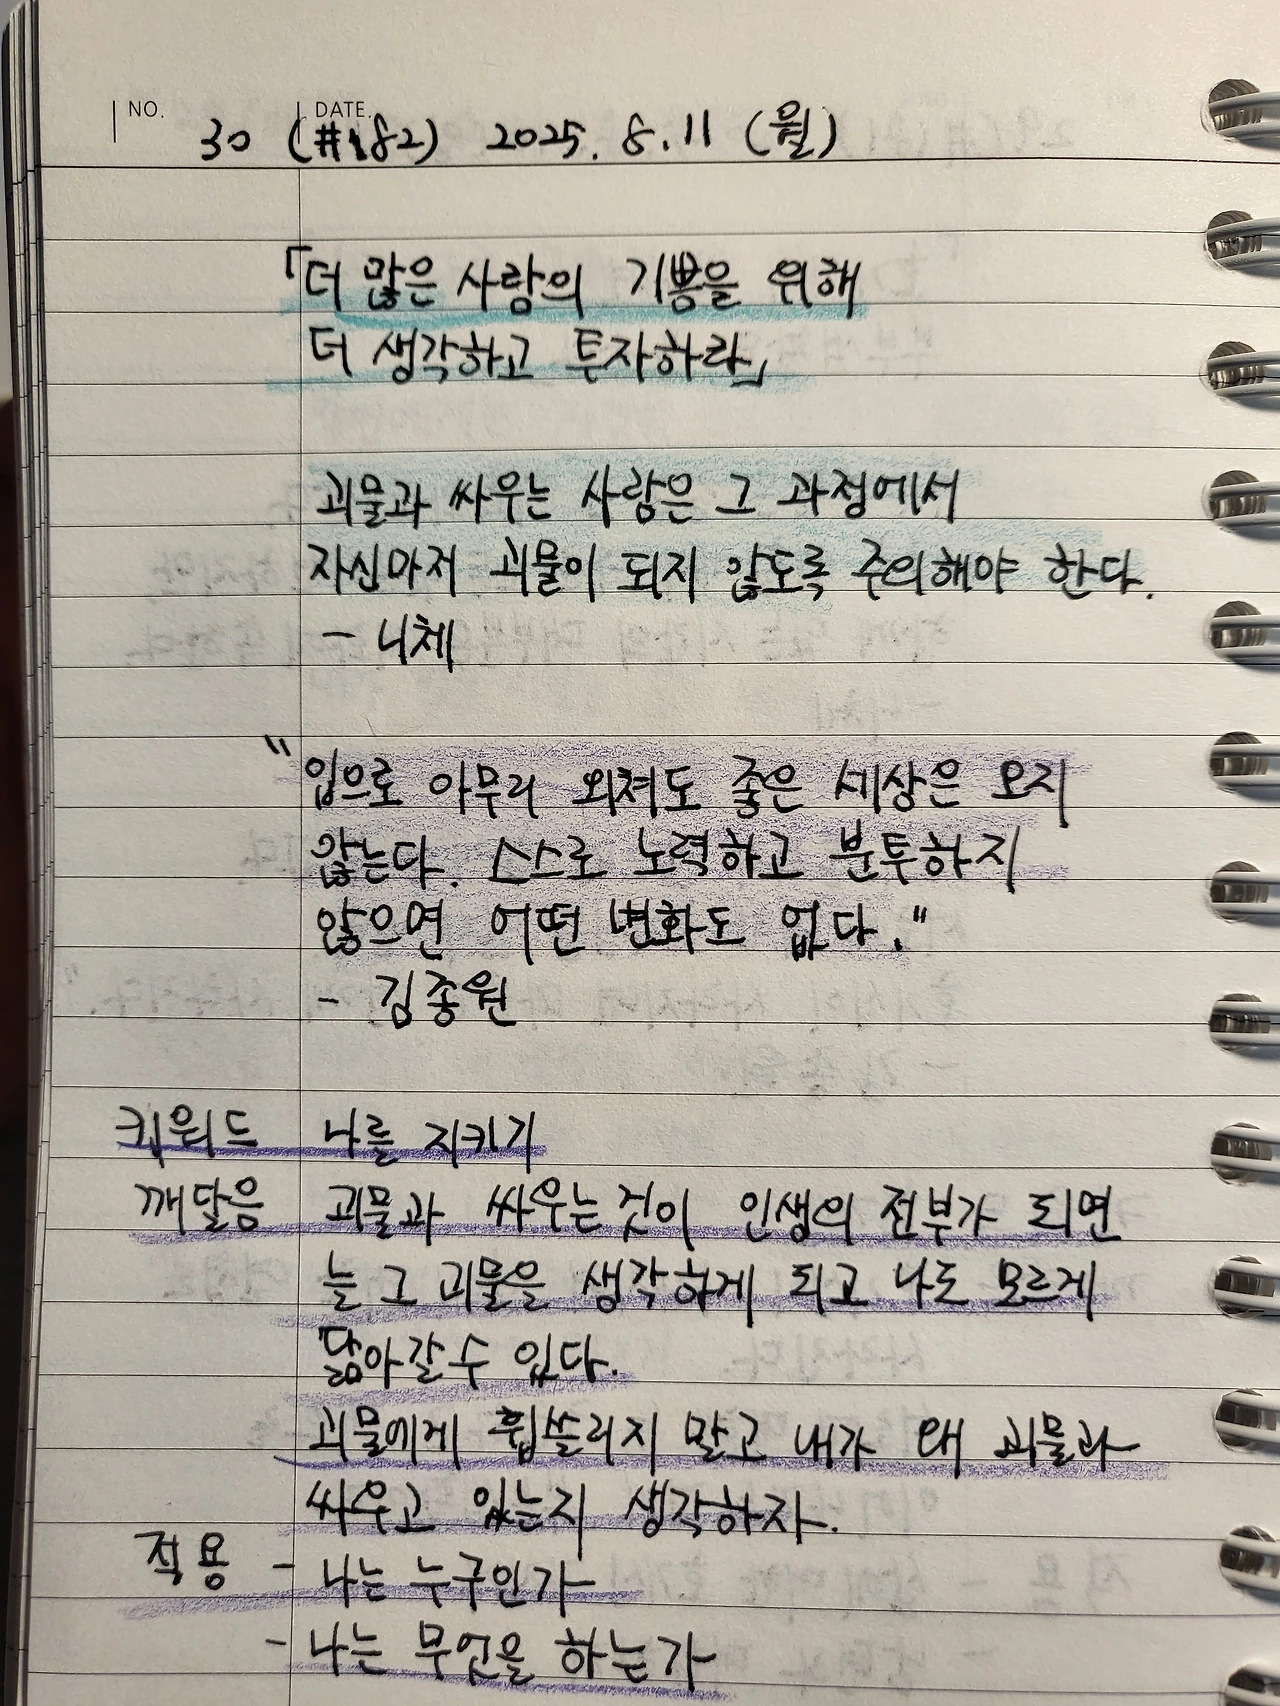 NO. DATE.
30 (#182) 2025. 8. 11 (월)
「더 많은 사람의 기쁨을 위해
더 생각하고 투자하라」
괴물과 싸우는 사람은 그 과정에서
자신마저 괴물이 되지 않도록 주의해야 한다.
- 니체
"입으로 아무리 외쳐도 좋은 세상은 오지
않는다. 스스로 노력하고 분투하지
않으면 어떤 변화도 없다."
- 김종원
키워드 나를 지키기
깨달음 괴물과 싸우는 것이 인생의 전부가 되면
늘 그 괴물을 생각하게 되고 나도 모르게
닮아갈 수 있다.
괴물에게 휩쓸리지 말고 내가 왜 괴물과
싸우고 있는지 생각하자.
적용 - 나는 누구인가
- 나는 무엇을 하는가